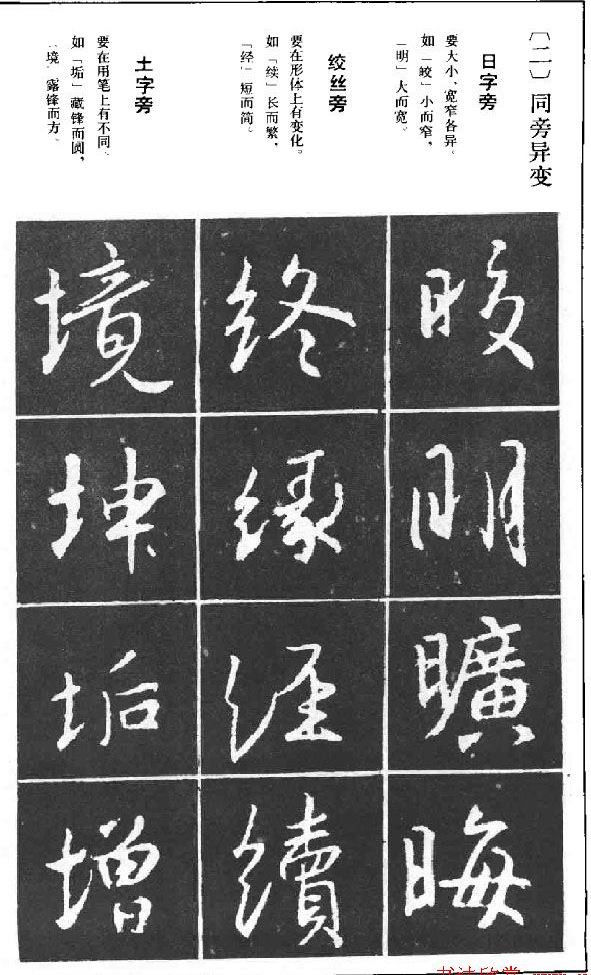 〔二〕同旁异变
日字旁
要大小、宽窄各异。
如「皎」小而窄，
「明」大而宽。
绞丝旁
要在形体上有变化。
如「续」长而繁，
「经」短而简。
土字旁
要在用笔上有不同。
如「垢」藏锋而圆，
「境」露锋而方。
晈
明
曠
晦
终
缘
经
續
境
坤
垢
增